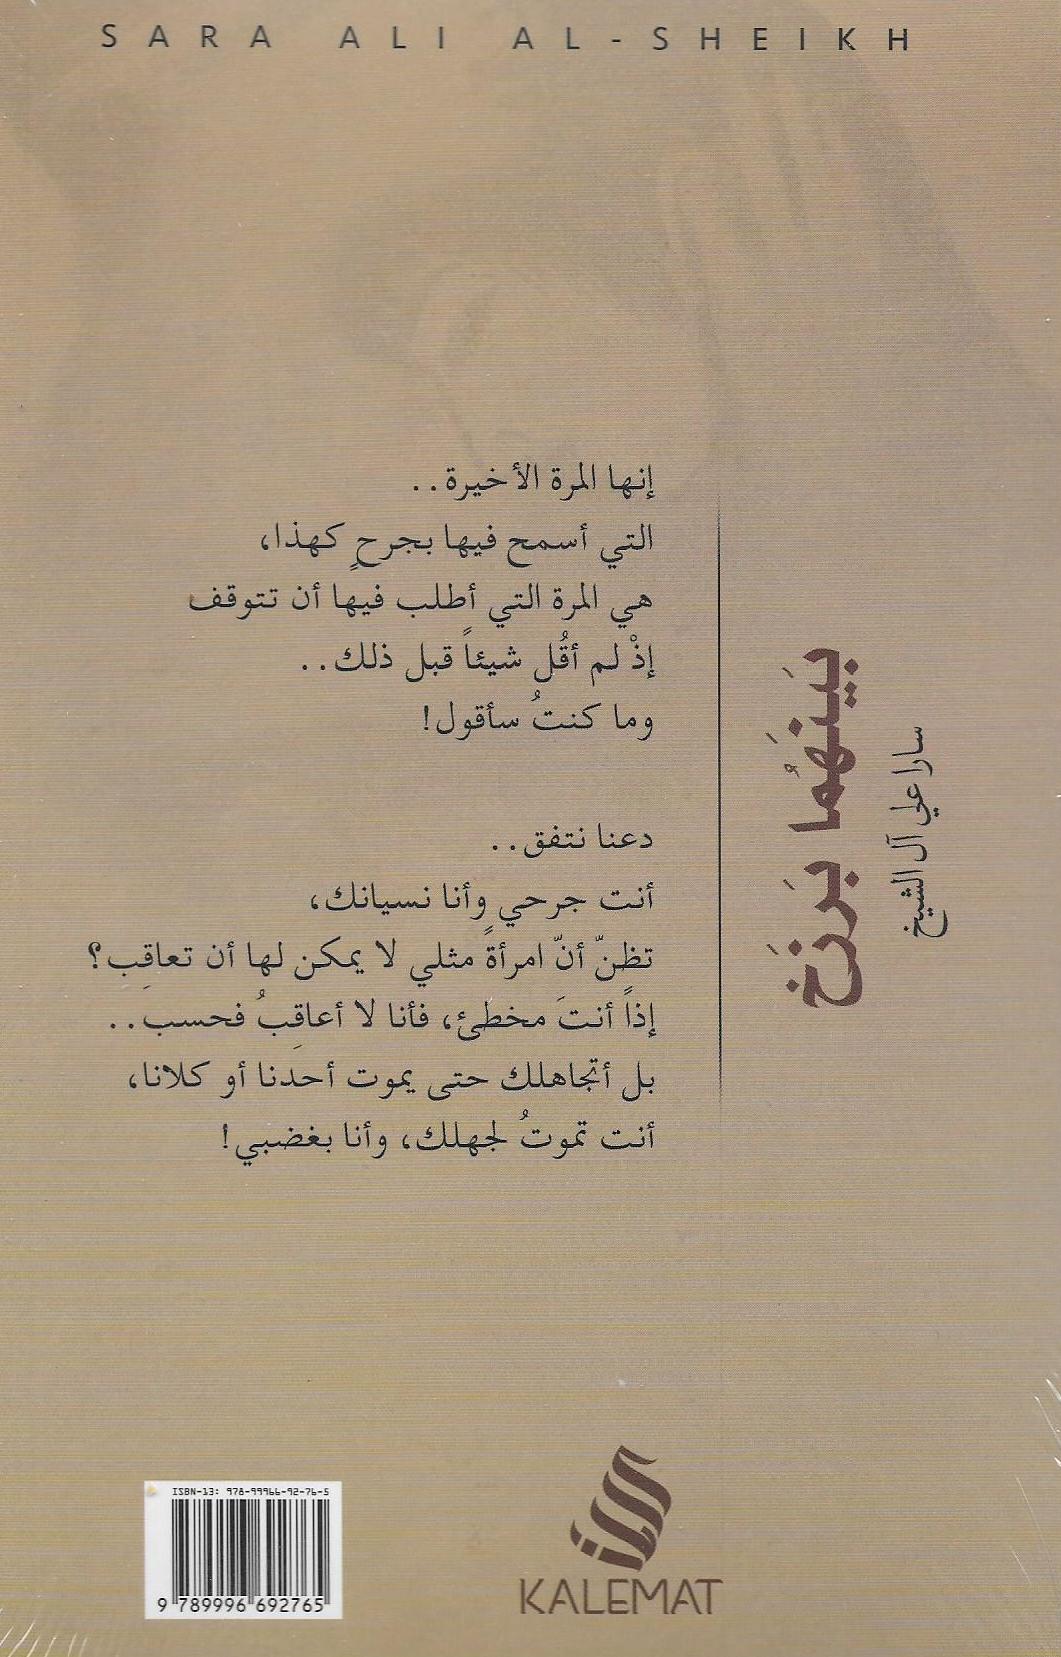 SARA ALI AL-SHEIKH
إنها المرة الأخيرة..
التي أسمح فيها بجرحٍ كهذا،
هي المرة التي أطلب فيها أن تتوقف
إذْ لم أقُل شيئاً قبل ذلك..
وما كنتُ سأقول!
دعنا نتفق..
أنت جرحي وأنا نسيانك،
تظنّ أنّ امرأةً مثلي لا يمكن لها أن تعاقِب؟
إذاً أنتَ مخطئ، فأنا لا أعاقِبُ فحسب..
بل أتجاهلك حتى يموت أحدنا أو كلانا،
أنت تموتُ لجهلك، وأنا بغضبي!
بَينَهُما بَرزَخ
سارا علي آل الشيخ
ISBN-13: 978-99966-92-76-5
9 789996 692765
KALEMAT